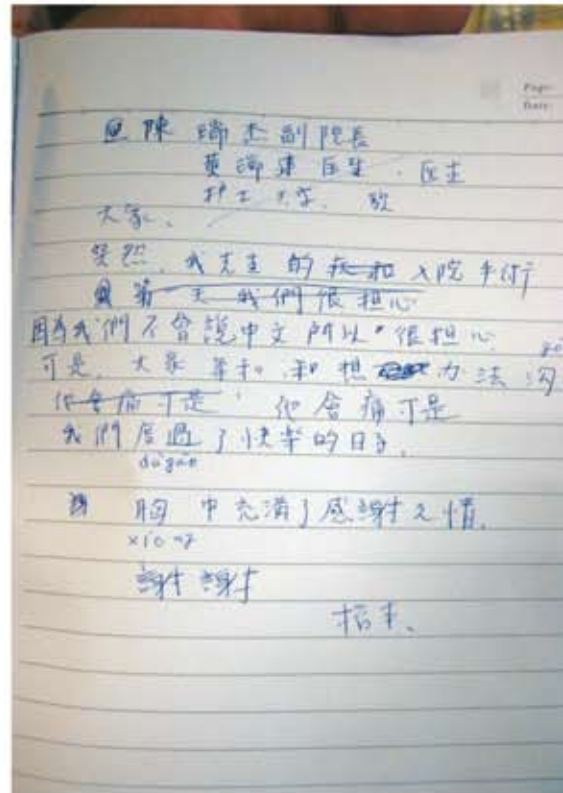 Page:
Date:
陳 瑞杰副院長
黃瑞建医生 . 医生
护士
大家、
突然, 我先生的 入院手術
第一天 我們很担心
因為我們不會說中文 所以 很担心
可是, 大家 和想 办法 沟
他會痛可是, 他会痛可是
我們度過了快樂的日子,
dù guò
胸中充滿了感謝之情,
xiōng
謝謝